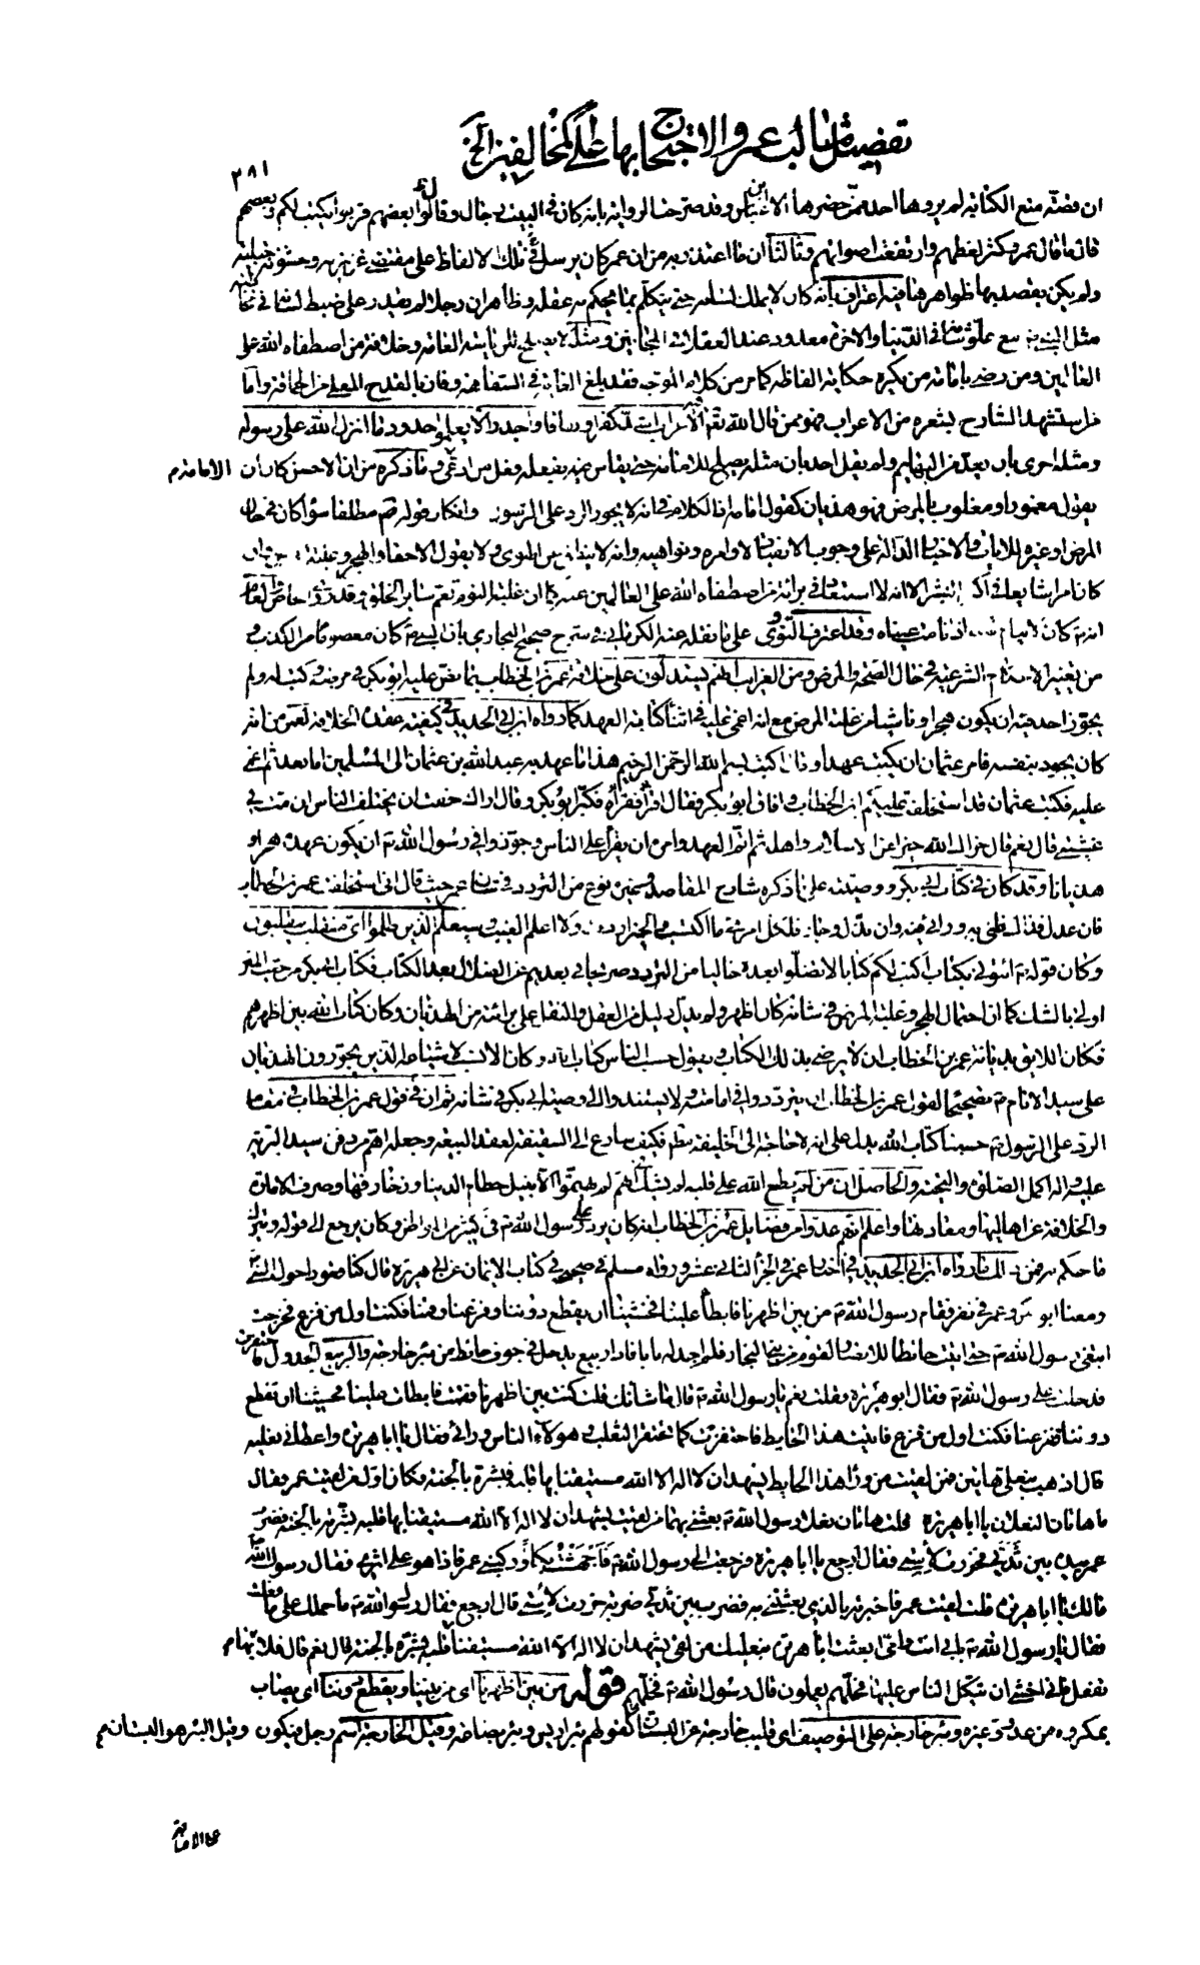 تفصيل مثالب عمر والاحتجاج بها على المخالفين الخ
٢٨١
ان قصة منع الكتابة لم يروها احد ممن حضرها الا ابن عباس وقد صرحت الرواية بانه كان في البيت رجال وقال بعضهم قربوا يكتب لكم وبعضهم
قال ما قال عمر وكثر لغطهم وارتفعت اصواتهم وثالثا ان ما اعتذر به من ان عمر كان يرسل تلك الالفاظ على مقتضى غريزته وخشونة جبلته
ولم يكن يقصد بها ظواهرها ففيه اعتراف بانه كان لا يملك لسانه حتى يتكلم بما يحكم به عقله وظاهر ان رجلا لم يقدر على ضبط لسانه في
مثل النبي مع علو شانه في الدنيا والاخرة معدود عند العقلاء في المجانين ومثله لا يصلح للرئاسة العامة وخلافة من اصطفاه الله على
العالمين ومن رضي بامامة من يكره حكاية الفاظه كما مر من كلام الموجه فقد بلغ الغاية في السفاهة وفاز بالقدح المعلى من الحماقة واما
من استشهد الشارح بشعره من الاعراب فهو ممن قال الله تعالى الاعراب اشد كفرا ونفاقا واجدر الا يعلموا حدود ما انزل الله على رسوله
ومثله احرى بان يعد من البهائم ولم يقل احد بان مثله يصلح للامامة حتى يقاس به فعله وما ذكره من ان الاحسن كان ان
يقول مغمور او مغلوب بالمرض فهو هذيان كقول امامه اذ الكلام في انه لا يجوز الرد على الرسول وانكار قوله مطلقا سواء كان في حال
المرض او غيره للايات والاخبار الدالة على وجوب الانقياد لاوامره ونواهيه وانه لا ينطق عن الهوى ولا يقول الا حقا والهجر وغلبة
كان امرا شايعا في اكثر البشر الا انه لا استبعاد في براءة من اصطفاه الله على العالمين عنه كما ان غلبة النوم تعم سائر الخلق وقد روى الخاص والعام
انه كان لا ينام قلبه اذا نامت عيناه وقد اعترف النووي على ما نقله عنه الكرماني في شرح صحيح البخاري بان النبي كان معصوما من الكذب و
من تغيير الاحكام الشرعية في حال الصحة والمرض ومن الغرايب انهم يستدلون على خلافة عمر بن الخطاب بما نص عليه ابو بكر في مرضه وكتب له ولم
يجوز احد فيه ان يكون هجرا وناشيا من غلبة المرض مع انه اغمي عليه في اثناء كتابة العهد كما رواه ابن ابي الحديد في كيفية عقده الخلافة لعمر من انه
كان يجود بنفسه فامر عثمان ان يكتب عهدا وقال اكتب بسم الله الرحمن الرحيم هذا ما عهد به عبد الله بن عثمان الى المسلمين اما بعد ثم اغمي
عليه فكتب عثمان قد استخلفت عليكم ابن الخطاب وافاق ابو بكر فقال اقرأ فقرأه فكبر ابو بكر وقال اراك خفت ان يختلف الناس ان مت في
غشيتي قال نعم قال جزاك الله خيرا عن الاسلام واهله ثم اتم العهد وامر ان يقرأ على الناس وجوزوا في رسول الله ان يكون عهده هجرا و
هذيانا وقد كان في كتاب ابي بكر ووصيته على ما ذكره شارح المقاصد وغيره نوع من التردد في شان عمر حيث قال اني استخلفت عمر بن الخطاب
فان عدل فذاك ظني به ورائي فيه وان بدل وجار فلكل امرئ ما اكتسب والخير اردت ولا اعلم الغيب وسيعلم الذين ظلموا اي منقلب ينقلبون
وكان قوله ائتوني بكتاب اكتب لكم كتابا لا تضلوا بعده خاليا من التردد وصريحا في بعدهم عن الضلال بعد الكتاب فكتاب ابي بكر من حيث المتن
اولى بالشك كما ان احتمال الهجر وغلبة المرض في شانه كان اظهر ولم يدل دليل من العقل والنقل على براءته من الهذيان وكان كتاب الله بين اظهرهم
فكان اللايق بديانة عمر بن الخطاب ان لا يرضى بذلك الكتاب ويقول حسب الناس كتاب الله وكان الانسب لاشياعه الذين يجوزون الهذيان
على سيد الانام تصحيحا لقول عمر بن الخطاب ان يترددوا في امامته ولا يستندوا الى وصية ابي بكر في شانه ثم ان في قول عمر بن الخطاب في مقام
الرد على الرسول حسبنا كتاب الله يدل على انه لا حاجة الى الخليفة فكيف سارع الى السقيفة لعقد البيعة وجعله اهم من دفن سيد البرية
عليه واله اكمل الصلوة والتحية والحاصل ان من لم يطع الله على قلبه لم يشك في انهم لم يهتموا الا بنيل حطام الدنيا وزخارفها وصرف الامارة
والخلافة عن اهاليها ومعادنها واعلم انهم عدوا من فضايل عمر بن الخطاب انه كان يرد على رسول الله في كثير من المواطن وكان يرجع الى قوله ويترك
ما حكم به فمن ذلك ما رواه ابن ابي الحديد في اخبار عمر في الجزء الثاني عشر ورواه مسلم في صحيحه في كتاب الايمان عن ابي هريرة قال كنا قعودا حول النبي
ومعنا ابو بكر وعمر في نفر فقام رسول الله من بين اظهرنا فابطأ علينا فخشينا ان يقطع دوننا وفزعنا وقمنا فكنت اول من فزع فخرجت
ابتغي رسول الله حتى اتيت حائطا للانصار لقوم من بني النجار فلم اجد له بابا فاذا ربيع يدخل في جوف حائط من بئر خارجة والربيع الجدول فاحتفزت
فدخلت على رسول الله فقال ابو هريرة فقلت نعم يا رسول الله قال ما شانك قلت كنت بين اظهرنا فقمت فابطات علينا فخشينا ان تقطع
دوننا ففزعنا فكنت اول من فزع فاتيت هذا الحايط فاحتفزت كما يحتفز الثعلب وهولاء الناس ورائي فقال يا ابا هريرة واعطاني نعليه
قال اذهب بنعلي هاتين فمن لقيت من وراء هذا الحايط يشهد ان لا اله الا الله مستيقنا بها قلبه فبشره بالجنة فكان اول من لقيت عمر فقال
ما هاتان النعلان يا ابا هريرة فقلت هاتان نعلا رسول الله بعثني بهما من لقيت يشهد ان لا اله الا الله مستيقنا بها قلبه بشرته بالجنة فضرب
عمر بيده بين ثديي فخررت لاستي فقال ارجع يا ابا هريرة فرجعت الى رسول الله فاجهشت بكاء وركبني عمر فاذا هو على اثري فقال رسول الله
مالك يا ابا هريرة قلت لقيت عمر فاخبرته بالذي بعثتني به فضرب بين ثديي ضربة خررت لاستي قال ارجع فقال رسول الله ما حملك على ما فعلت
فقال يا رسول الله بابي انت وامي ابعثت ابا هريرة بنعليك من لقي يشهد ان لا اله الا الله مستيقنا قلبه بشره بالجنة قال نعم قال فلا
تفعل فاني اخشى ان يتكل الناس عليها فخلهم يعملون قال رسول الله فخلهم قوله من بين اظهرنا اي من بيننا ويقطع دوننا اي يصاب
بمكروه من عدو وغيره وبئر خارجة على التوصيف اي قليب خارجة عن البستان كقولهم بئر اريس وبئر بضاعة وقيل الخارجة اسم رجل فيكون وقيل البئر هو البستان